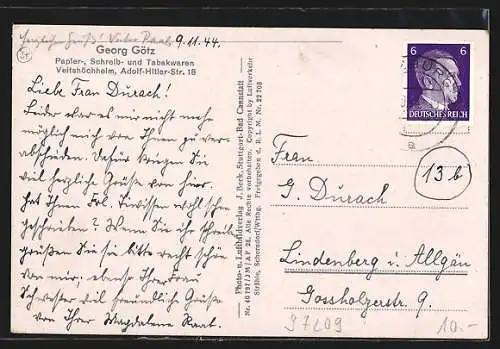 herzlichen Gruß! 9.11.44.
Georg Götz
Papier-, Schreib- und Tabakwaren
Veitshöchheim, Adolf-Hitler-Str. 18
Liebe Frau Durach!
Leider war es mir nicht mehr
möglich mich von Ihnen zu ver-
abschieden. Dafür
viel herzliche Grüße von hier.
hat Ihnen Frl. wohl schon
geschrieben? Wenn Sie ihr schreiben
grüßen Sie sie bitte recht schön
von mir, ebenso Ihre Frau
Schwester viel freundliche Grüße
von Ihrer Magdalene
Photo- u. Luftbildverlag J. Beck, Stuttgart-Bad Cannstatt
Alle Rechte vorbehalten. Copyright by Luftverkehr
Strähle, Schorndorf/Wttbg. Freigegeben d. R. L. M. Nr.
6 6
DEUTSCHES REICH
Frau
G. Durach
13b
Lindenberg i. Allgäu
Gossholzerstr. 9.
97209
10.-